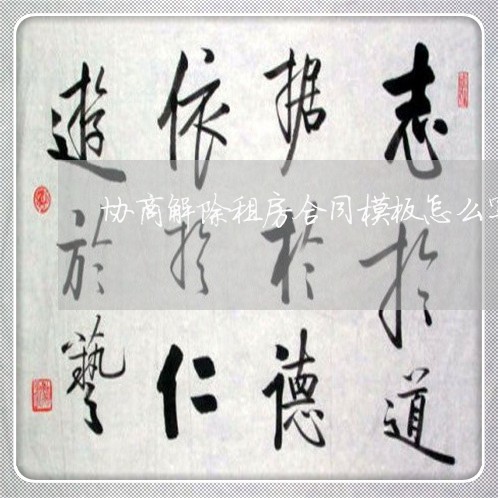 志於道
据於德
依於仁
遊於藝
协商解除租房合同模板怎么